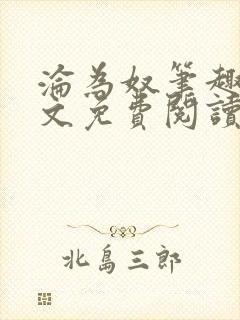 淪為奴筆趣
文免費閱讀
北島三郎